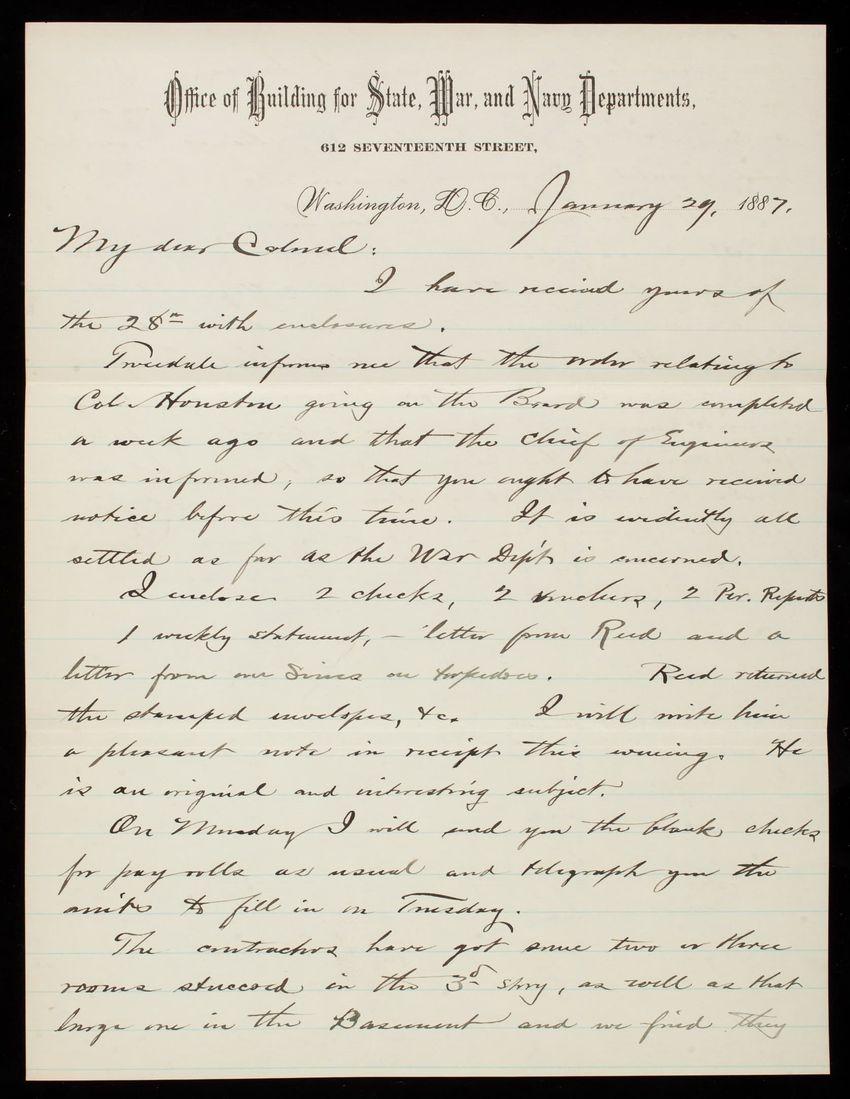 Office of Building for State, War, and Navy Departments,
612 SEVENTEENTH STREET,
Washington, D.C., January 29, 1887.
My dear Colonel:
I have received yours of
the 28th with enclosures.
Tweedale informs me that the order relating to
Col. Houston going on the Board was completed
a week ago and that the Chief of Engineers
was informed, so that you ought to have received
notice before this time. It is evidently all
settled as far as the War Dep't is concerned.
I enclose 2 checks, 2 vouchers, 2 Per. Reports
1 weekly statement, – letter from Reed and a
letter from one Sims on torpedoes. Reed returned
the stamped envelopes, &c. I will write him
a pleasant note in receipt this evening. He
is an original and interesting subject.
On Monday I will send you the blank checks
for pay rolls as usual and telegraph you the
amts to fill in on Tuesday.
The contractors have got some two or three
rooms stuccoed in the 3d story, as well as that
large one in the Basement and we find they